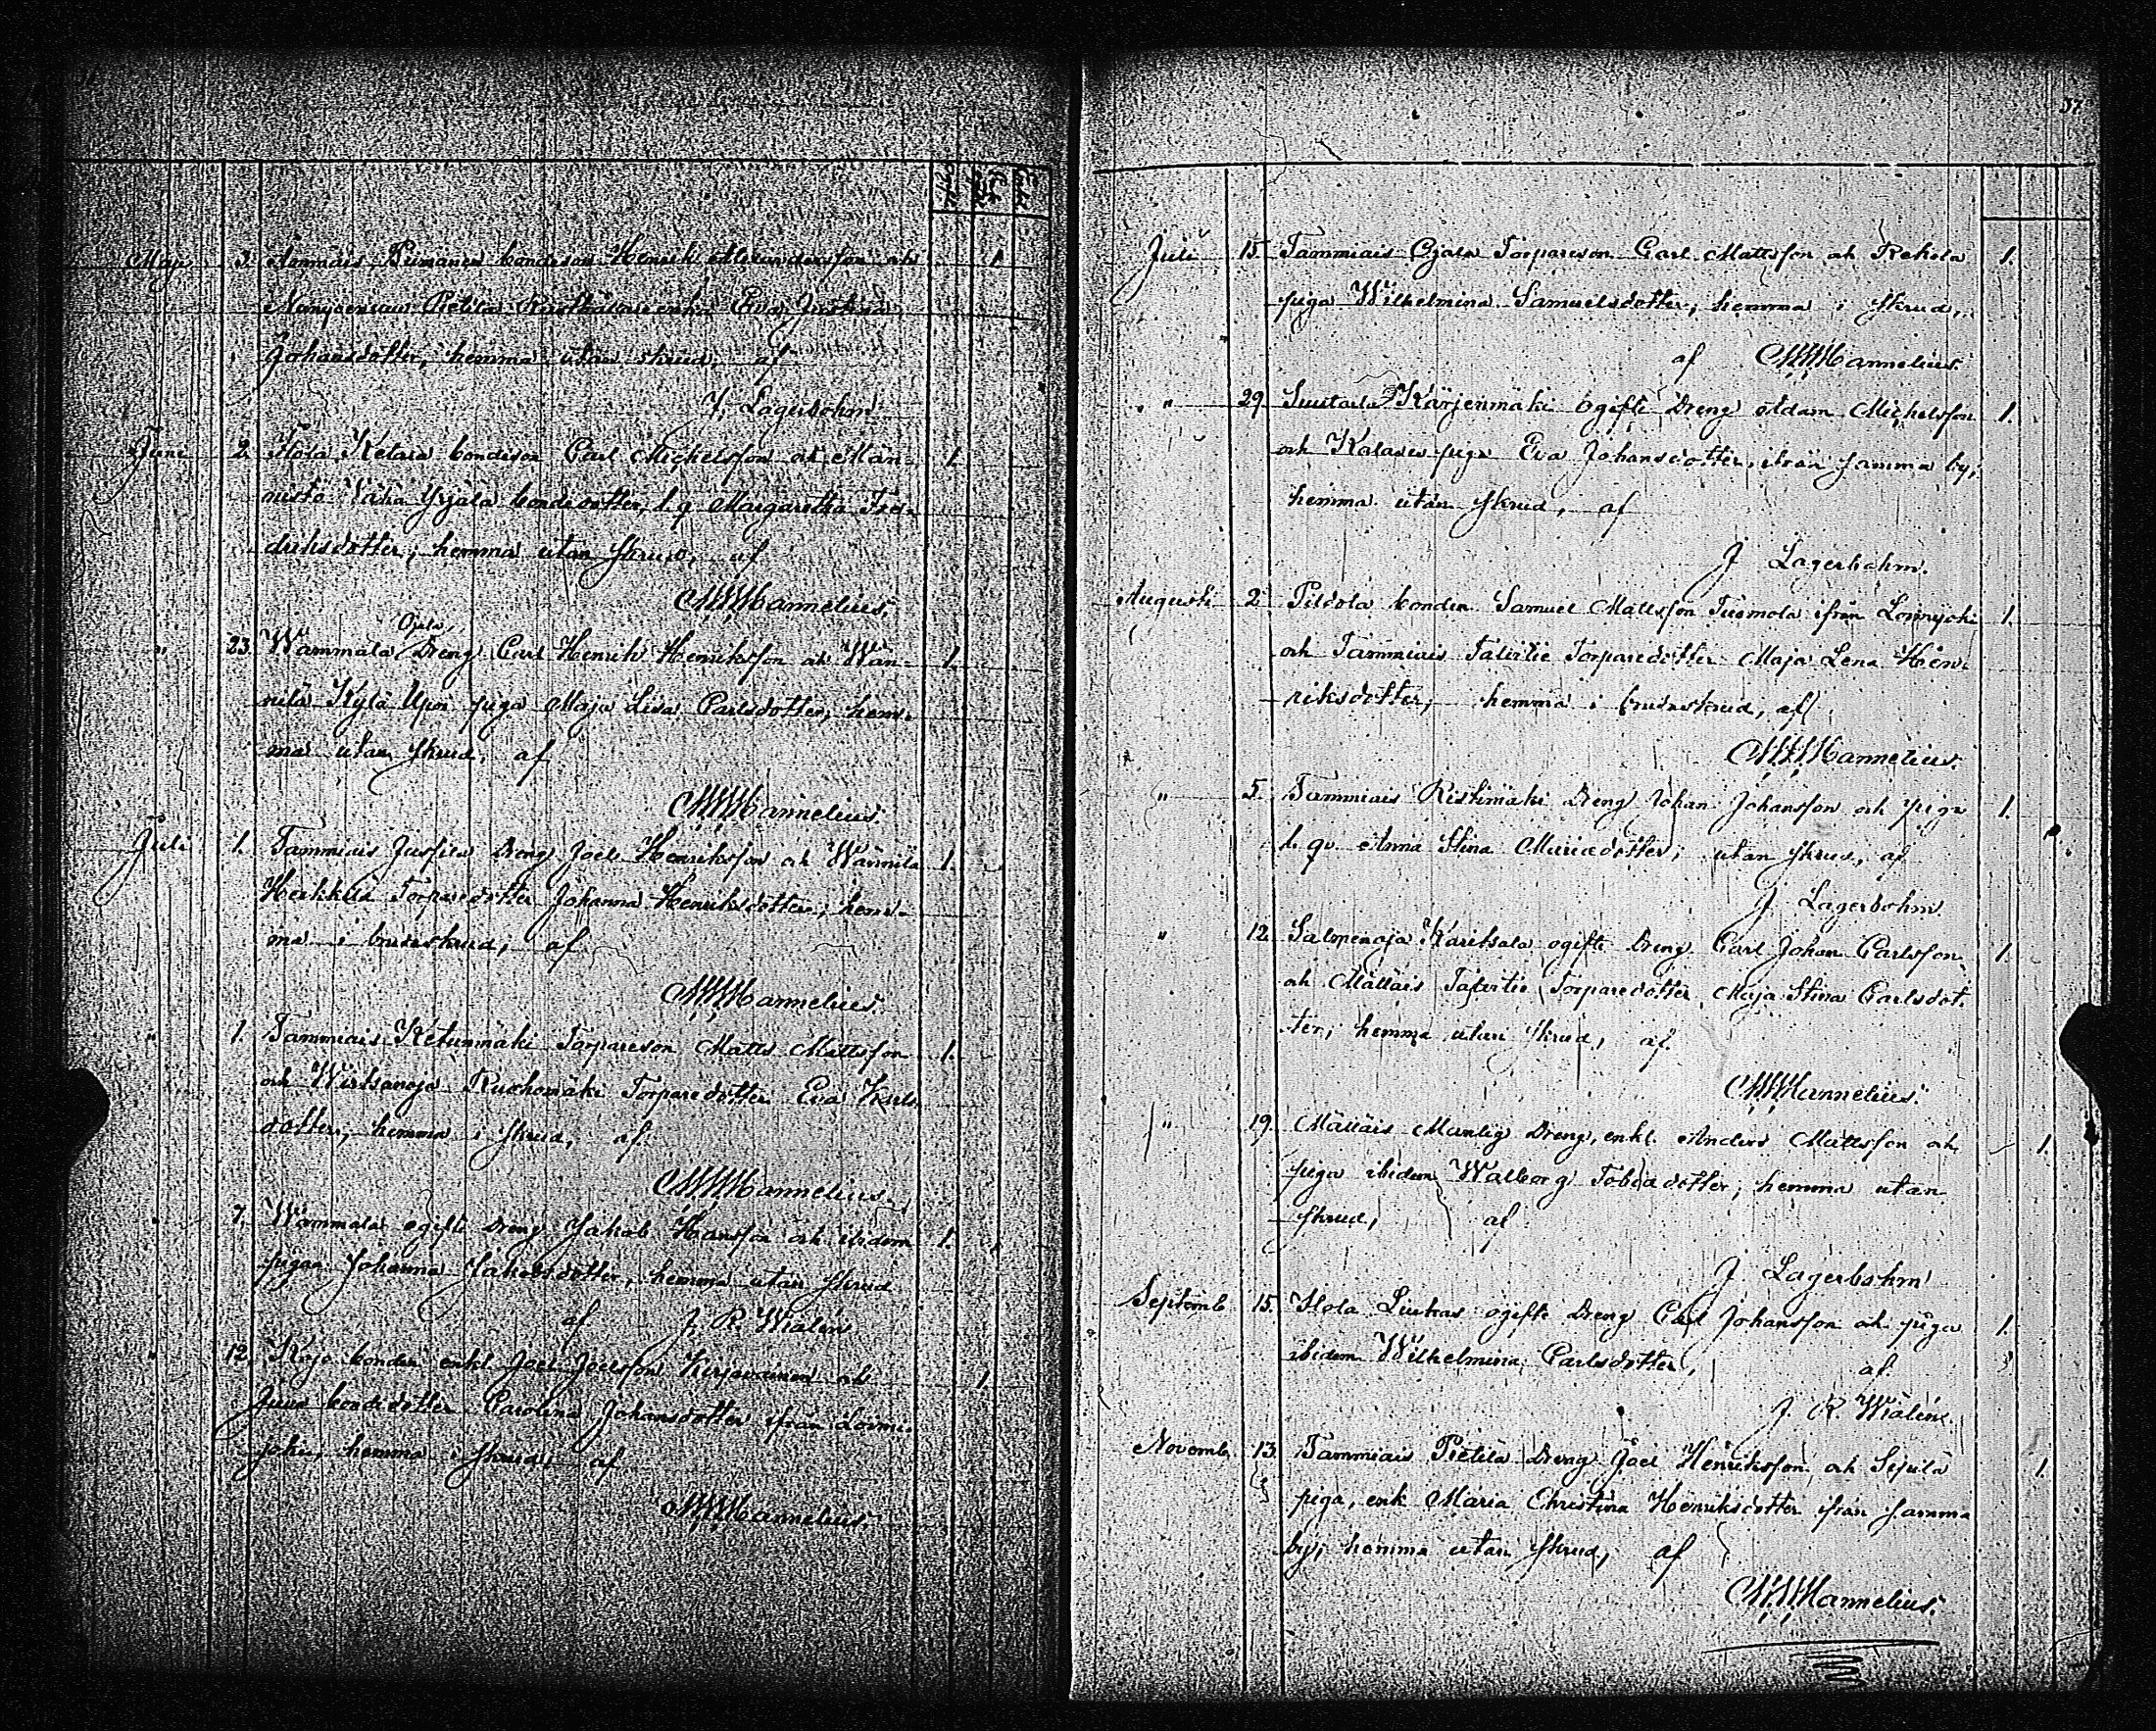 Maji 3. Tammiais bondeson Henrik Alexandersson och
Pietilä Rusthållare enka Eva Justina
Johansdotter, hemma utan skrud, af
J. Lagerbohm
Juni 2. Ilola Ketara bondeson Carl Michelsson och Män-
nistö Yrjälä bondedotter, d. q. Margaretha Fre-
driksdotter; hemma utan skrud, af
Mannelius.
Ojala,
" 23. Wammala Dreng Carl Henrik Henriksson och Wän-
nilä Kylä Upoi piga Maja Lisa Carlsdotter; hem-
ma utan skrud, af
Mannelius.
Juli 1. Tammiais Jussila Dreng Joel Henriksson och Wännilä 1.
Heikkilä Torparedotter Johanna Henriksdotter; hem-
ma i brudskrud, af
Mannelius.
" 1. Tammiais Ketunmäki Torpareson Matts Mattsson 1.
och Wirtsanoja Ruohomäki Torparedotter Eva Karls-
dotter; hemma i skrud, af
Mannelius.
" 7. Wammala ogifte Dreng Jakob Hansson och ibidem 1.
pigan Johanna Jakobsdotter, hemma utan skrud
af J. R. Wialén
" 12. Kojo bonden enkl. Joel Joelsson Kirjavainen och 1.
Juva bondedotter Carolina Johansdotter ifrån Loimi-
joki, hemma i skrud, af
Mannelius.
37
Juli 15. Tammiais Ojala Torpareson Carl Mattsson och Rekola 1.
piga Wilhelmina Samuelsdotter; hemma i skrud,
af Mannelius.
" 29. Suutala Kärjenmäki ogifte Dreng Adam Michelsson 1.
och piga Eva Johansdotter, ifrån samma by;
hemma utan skrud, af
J Lagerbohm.
Augusti 2. bonden Samuel Mattsson Tuomola ifrån Loimijoki 1.
och Tammiais Talvitie Torparedotter Maja Lena Hen-
riksdotter; hemma i brudskrud, af
Mannelius.
" 5. Tammiais Ristimäki Dreng Johan Johansson och piga 1.
d. q. Anna Stina dotter; utan skrud, af
J Lagerbohm
" 12. Salmenoja Karitsala ogifte Dreng Carl Johan Carlsson 1.
och Mällais Talvitie Torparedotter Maja Stina Carlsdot-
ter; hemma utan skrud, af
Mannelius.
" 19. Mällais Manlig Dreng, enkl. Anders Mattsson och 1.
piga ibidem Walborg Tobiadotter; hemma utan
skrud, af
J Lagerbohm
Septemb. 15. Ilola Liukas ogifte Dreng Carl Johansson och piga 1.
ibidem Wilhelmina Carlsdotter, af
J. R. Wialén
Novemb. 13. Tammiais Pietilä Dreng Joel Henriksson och Sepälä 1.
piga, enk. Maria Christina Henriksdotter ifrån samma
by; hemma utan skrud, af
Mannelius.